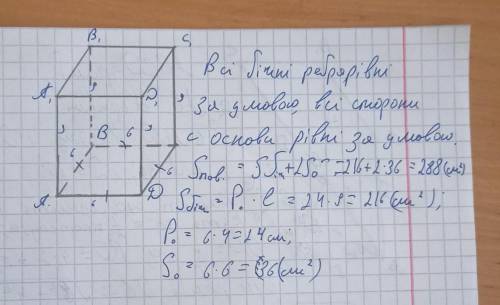 B₁ C₁
A₁ 9 D₁ 9
9 9
B 6 C
6 6
A 6 D
Всі бічні ребра рівні
за умовою, всі сторони
основи рівні за умовою.
Sпов. = Sбіч + 2Sо = 216 + 2·36 = 288 (см²)
Sбіч. = Pо · l = 24 · 9 = 216 (см²);
Pо = 6·4 = 24 см;
Sо = 6·6 = 36 (см²)